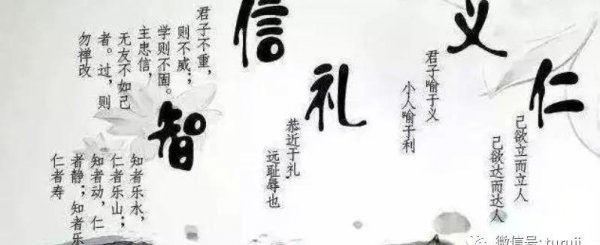 仁
己欲立而立人
己欲达而达人
义
君子喻于义
小人喻于利
礼
恭近于礼
远耻辱也
信
君子不重，
则不威；
学则不固。
主忠信，
无友不如己
者。过，则
勿禅改
智
知者乐水，
仁者乐山；
知者动，仁
者静；知者乐
仁者寿
微信号: